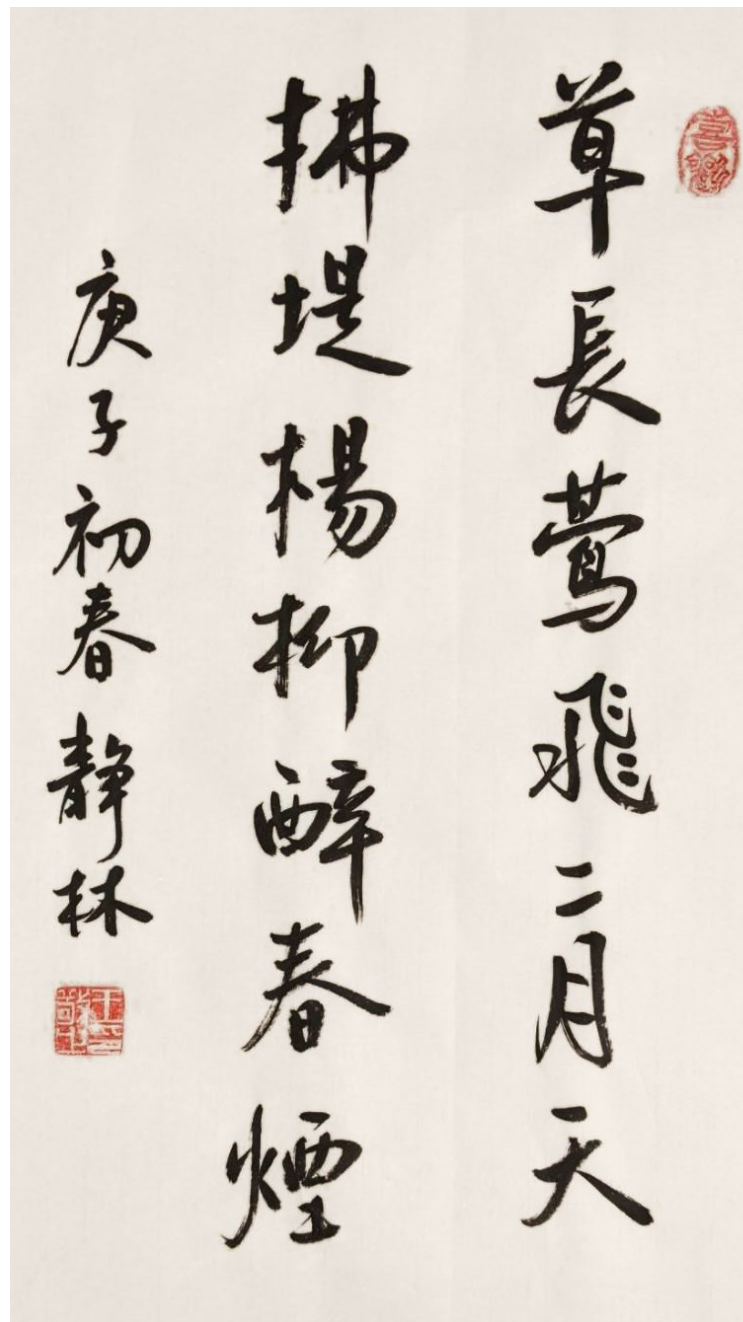 草長鶯飛二月天
拂堤楊柳醉春煙
庚子初春靜林